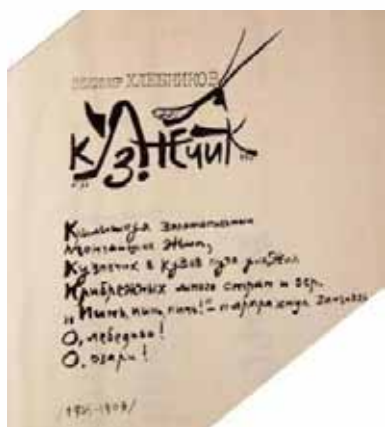 Велимир ХЛЕБНИКОВ
КУЗНЕЧИК
Крылышкуя Золотописьмом
Тончайших Жил,
Кузнечик в Кузов пуза уложил
Прибрежных много трав и вер.
„Пинь, пинь, пинь!“ – тарарахнул Зинзивер
О, лебедиво!
О, озари!